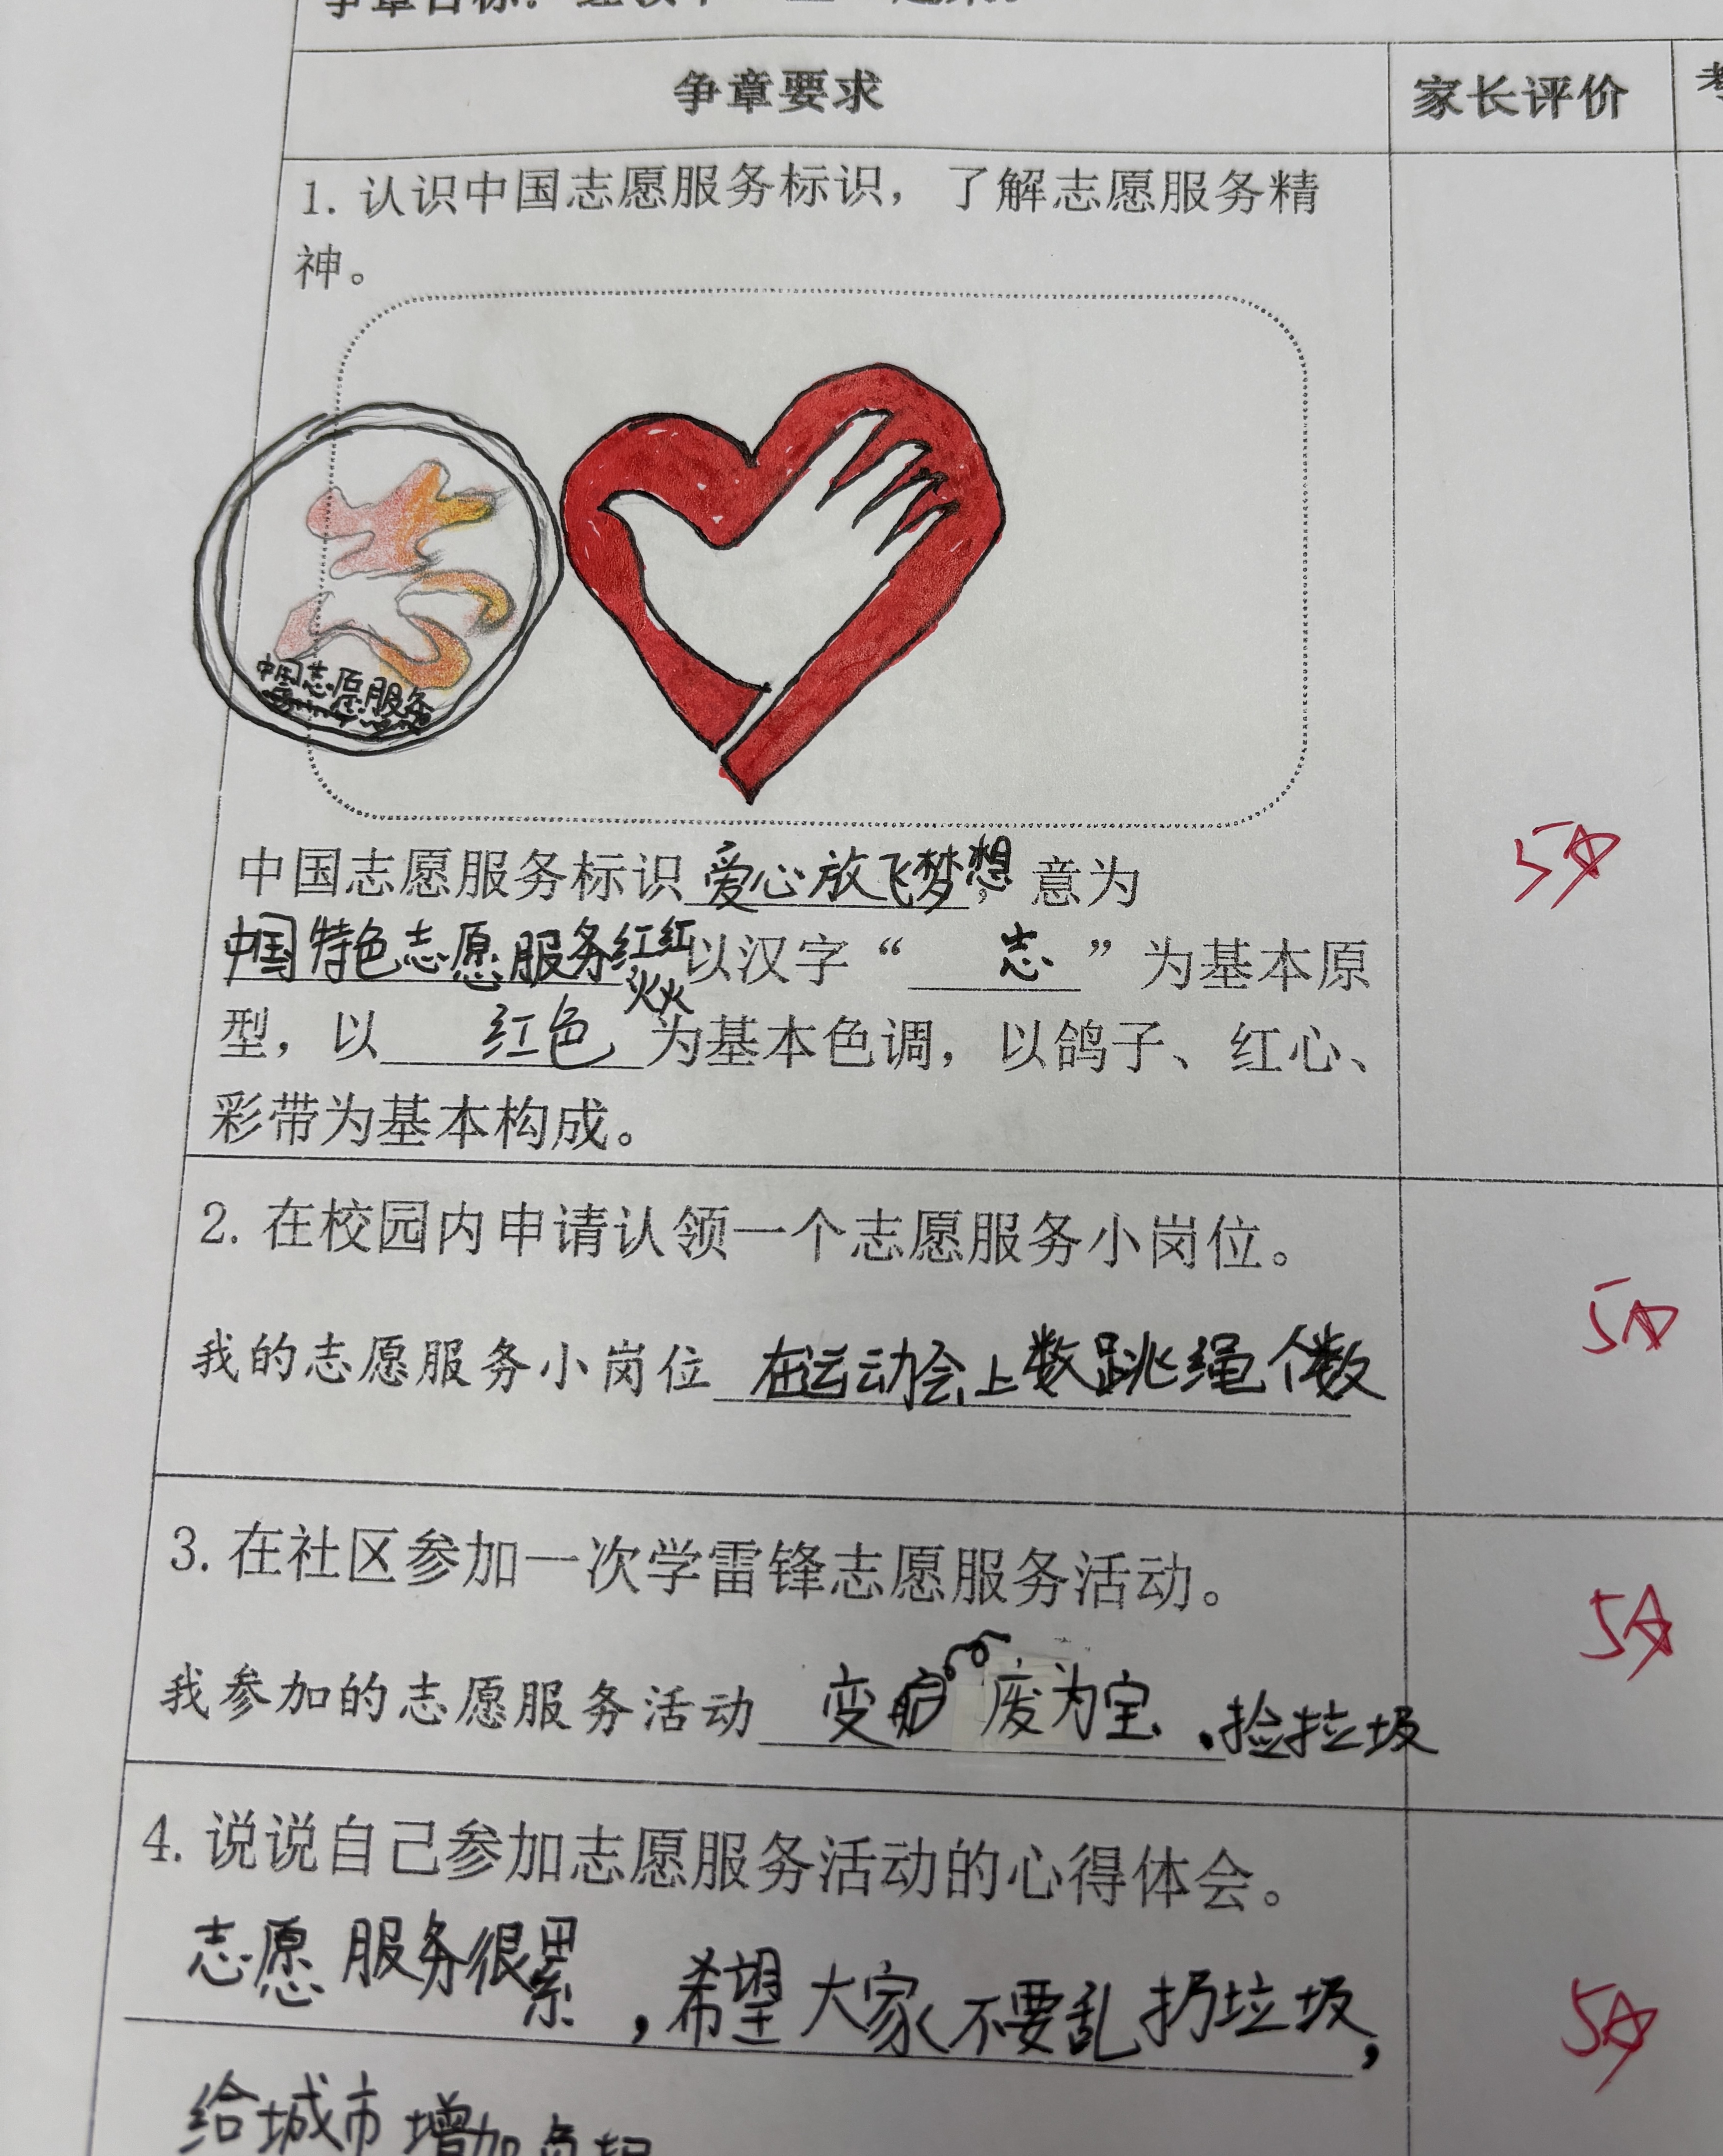 争章要求
家长评价
1. 认识中国志愿服务标识，了解志愿服务精
神。
中国志愿服务
中国志愿服务标识爱心放飞梦想，意为
中国特色志愿服务红红火火以汉字“志”为基本原
型，以红色为基本色调，以鸽子、红心、
彩带为基本构成。
5☆
2. 在校园内申请认领一个志愿服务小岗位。
我的志愿服务小岗位 在运动会上数跳绳个数
5☆
3. 在社区参加一次学雷锋志愿服务活动。
我参加的志愿服务活动 变废为宝、捡垃圾
5☆
4. 说说自己参加志愿服务活动的心得体会。
志愿服务很累，希望大家不要乱扔垃圾，
5☆
给城市增加负担